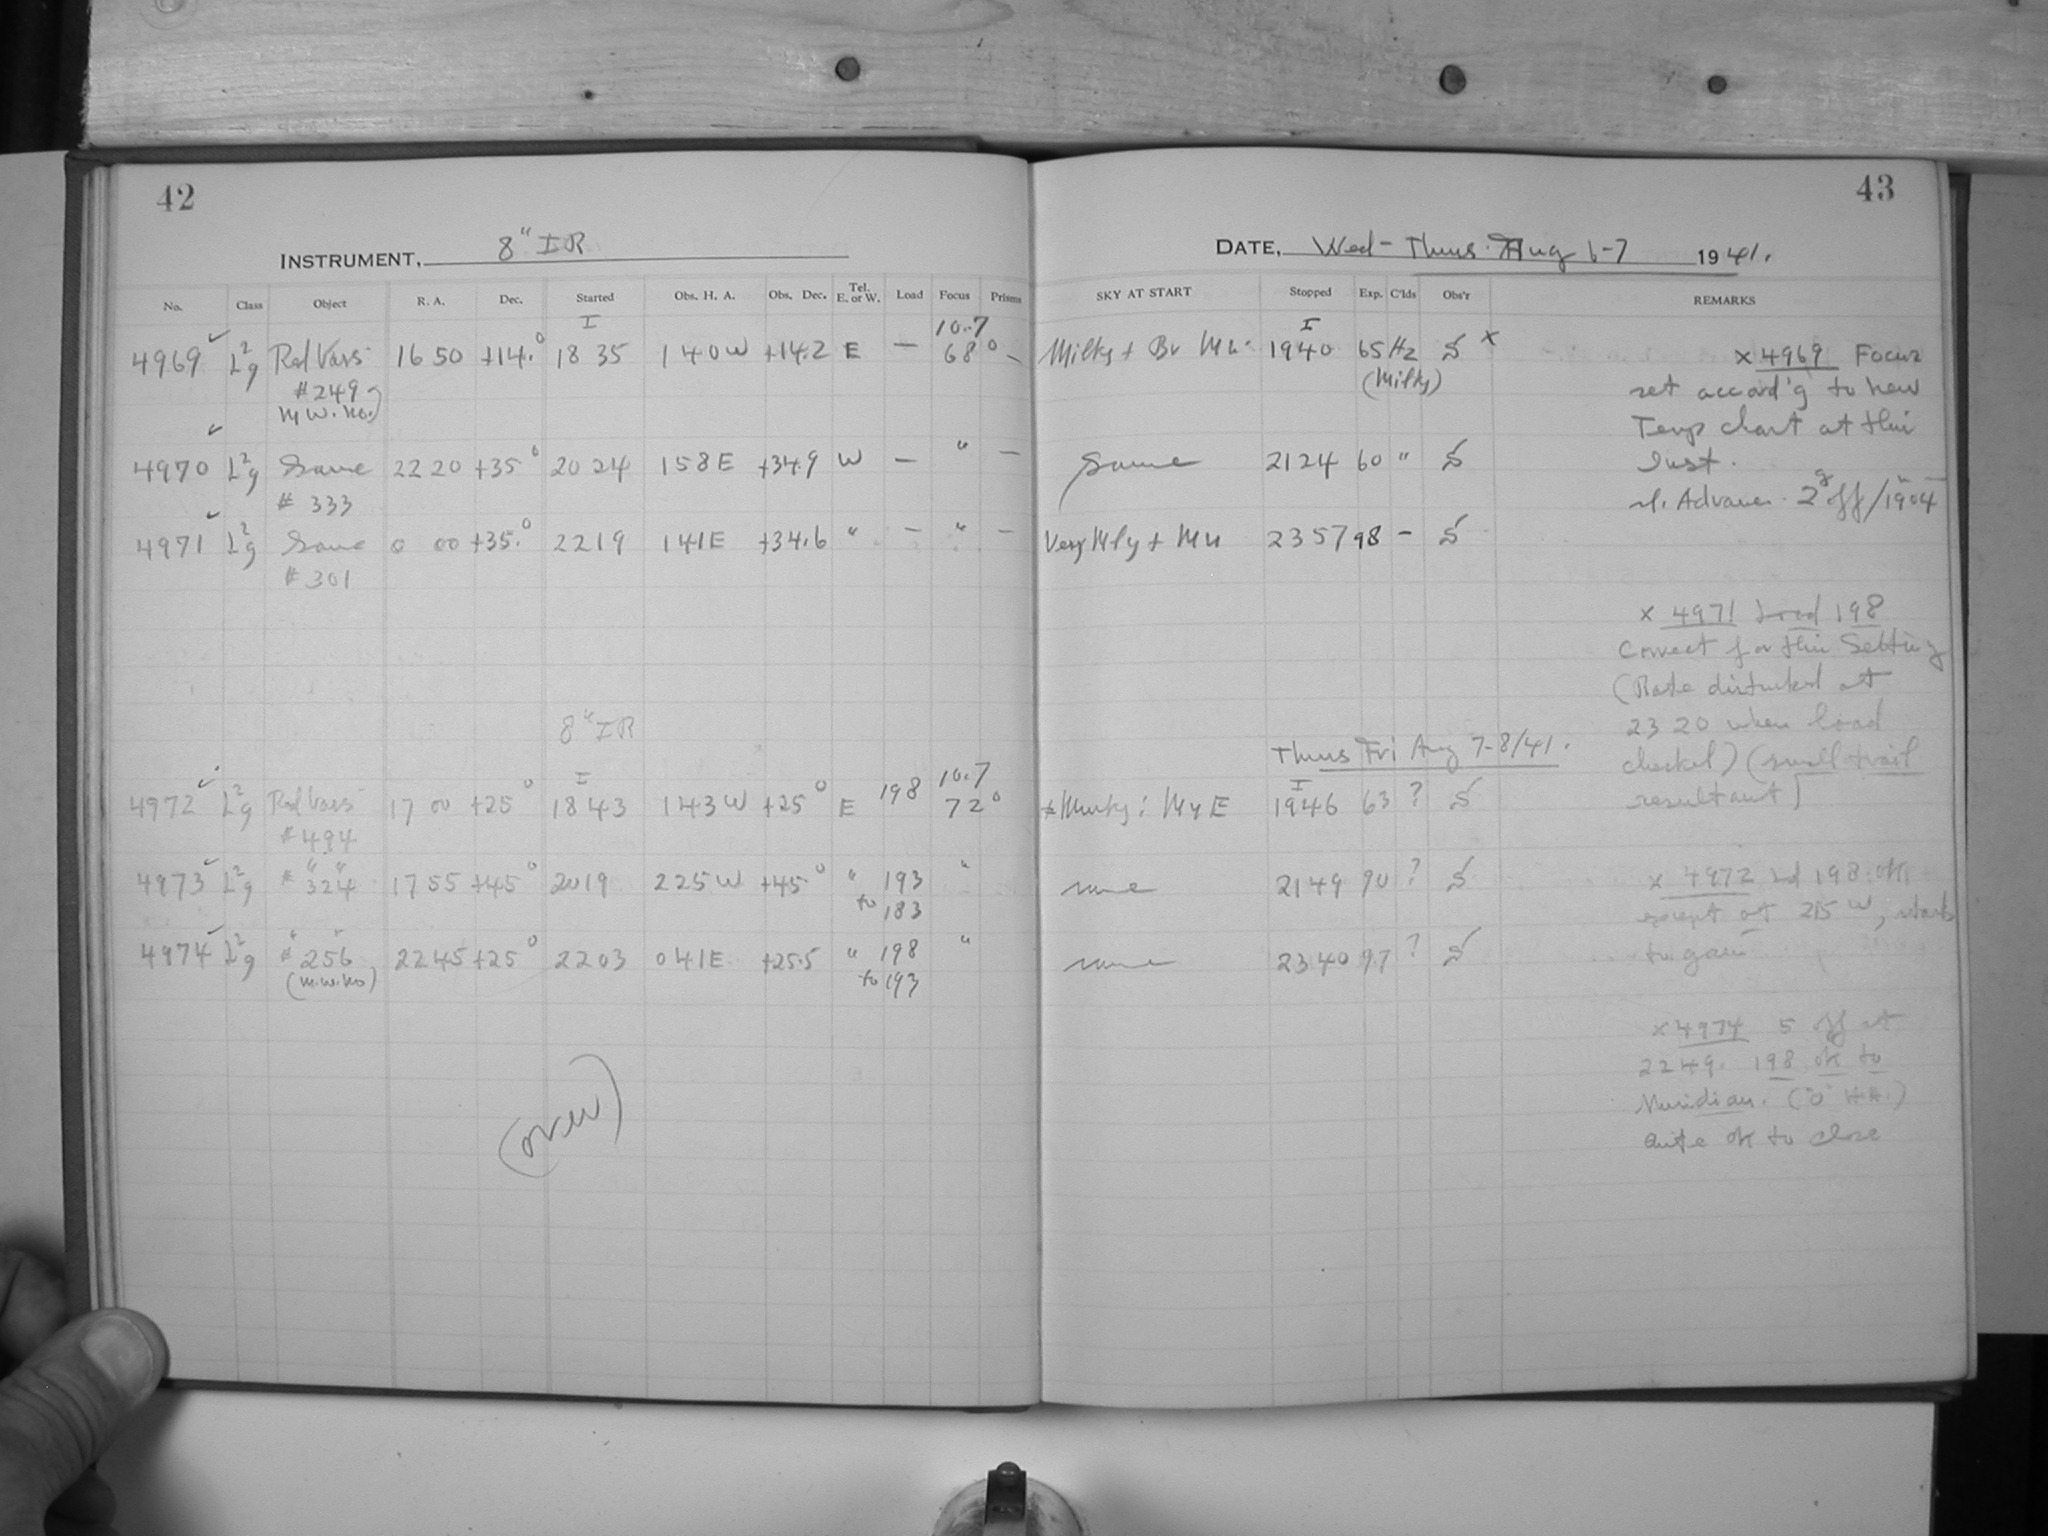 42
INSTRUMENT, 8" IR
No. Class Object R. A. Dec. Started Obs. H. A. Obs. Dec. Tel. E. or W. Load Focus Prisms
I 10.7
4969 ✓ L²g Red Vars 16 50 +14.° 18 35 1 40 W +14.2 E — 68° —
#249
M W. No.)
4970 ✓ L²g Same 22 20 +35° 20 24 158 E +34.9 W — " —
# 333
4971 ✓ L²g Same 0 00 +35.° 2219 141E +34.6 " — " —
# 301
8" IR
I 10.7
4972 ✓ L²g Red Vars 17 00 +25° 1843 143 W +25° E 198 72°
# 494
4973 ✓ L²g # " 324 " 1755 +45° 2019 225 W +45.° " 193 "
to 183
4974 ✓ L²g # " 256 " 2245 +25° 2203 041E +25.5 " 198 "
(M.W. No) to 193
(over)
43
DATE, Wed - Thurs. Aug 6-7 1941.
SKY AT START Stopped Exp. C'lds Obs'r REMARKS
I
Milky + Br Mn 1940 65 Hz x
(Milky)
Same 2124 60 "
Very Mly + Mn 2357 98 -
Thurs Fri Aug 7-8/41.
I
Murky: My E 1946 63 ?
same 2149 90 ?
same 2340 97 ?
x 4969 Focus
set accord'g to new
Temp chart at this
Inst.
Advance 2 off/1904
x 4971 Load 198
Correct for this Setting
(Rate disturbed at
2320 when load
checked) (small trail
resultant)
x 4972 Ld 198 ok
except at 215 W, starts
to gain
x 4974 5 off at
2249. 198 ok to
Meridian. ("0" H.A.)
Quite ok to close